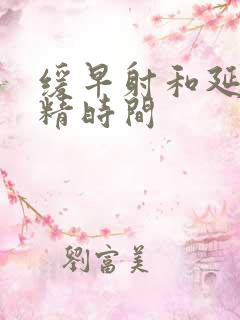 缓早射和延
精時間
劉富美